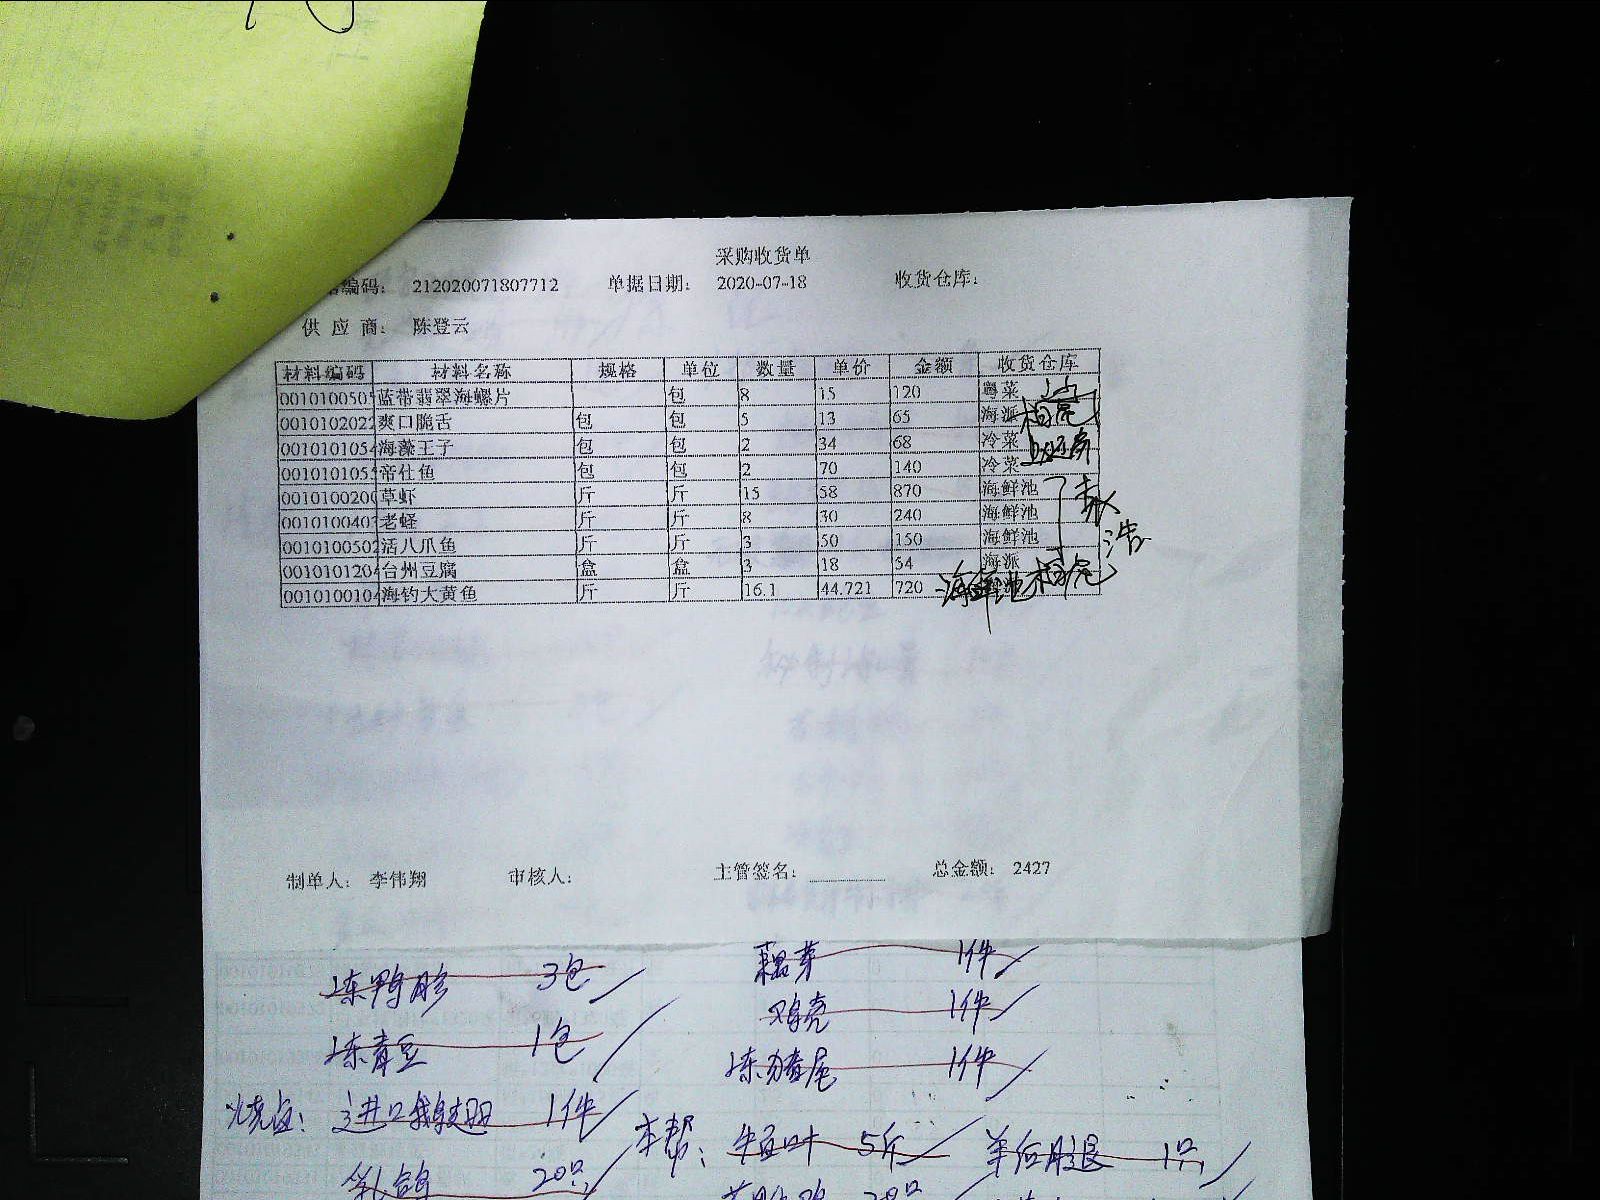 采购收货单
编码： 212020071807712 单据日期： 2020-07-18 收货仓库：
供 应 商： 陈登云
材料编码 材料名称 规格 单位 数量 单价 金额 收货仓库
0010100505 蓝带翡翠海螺片 包 8 15 120 粤菜
0010102022 爽口脆舌 包 包 5 13 65 海派
001010105 海藻王子 包 包 2 34 68 冷菜
001010105 帝仕鱼 包 包 2 70 140 冷菜
001010020 草虾 斤 斤 15 58 870 海鲜池
001010040 老蛏 斤 斤 8 30 240 海鲜池
0010100502 活八爪鱼 斤 斤 3 50 150 海鲜池
001010120 台州豆腐 盒 盒 3 18 54 海派
001010010 海钓大黄鱼 斤 斤 16.1 44.721 720 海鲜池
制单人： 李伟翔 审核人： 主管签名： 总金额： 2427
冻鸭胗 3包 藕芽 1件
鸡壳 1件
冻青豆 1包 冻猪尾 1件
烧卤： 进口鹅翅 1件 本帮： 5斤 羊后腿 1只
乳鸽 20只